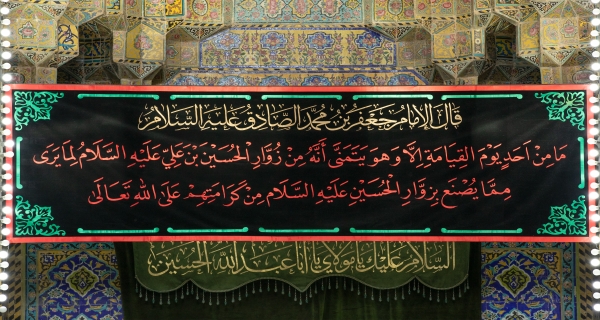 قال الإمام جعفر بن محمد الصادق عليه السلام
مَا مِنْ اَحَدٍ يَوْمَ القِيَامَةِ اِلاَّ وَهوَ يَتَمَنَّى أَنَّهُ مِنْ زُوَّارِ الْحُسَيْنِ بْنِ عَلِيٍّ عَلَيْهِ السَّلَامُ لِمَا يَرَى
مِمَّا يُصْنَعُ بِزُوَّارِ الْحُسَيْنِ عَلَيْهِ السَّلَام مِنْ كَرَامَتِهِمْ عَلَى اللهِ تَعَالَى
السلام عليك يا مولاي يا أبا عبد الله الحسين